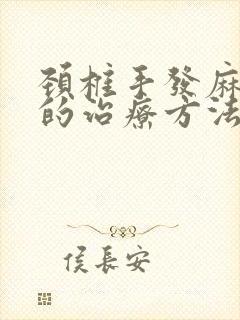 頸椎手發麻
的治療方法
侯長安